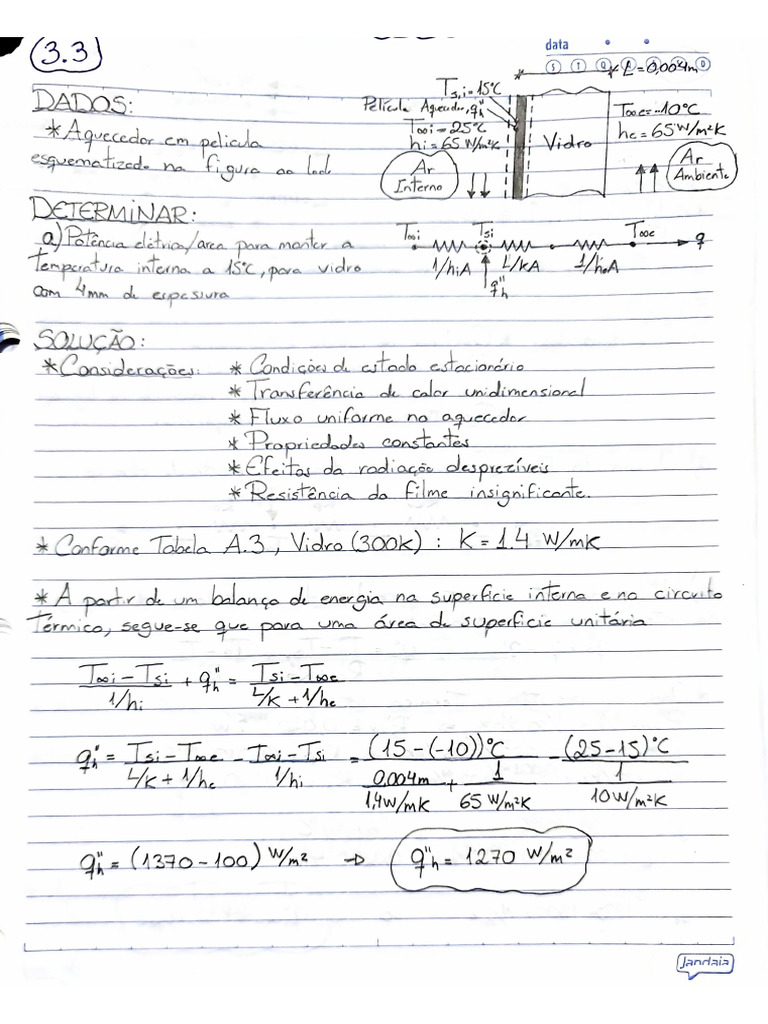 3.3
data
S T Q Q S S D
L=0,004m
DADOS:
* Aquecedor em pelicula
esquematizado na figura ao lado
Ts,i=15°C
Pelicula Aquecedor, q"h
T∞i=25°C
hi=65 W/m²K
Ar
Interno
Vidro
T∞e=-10°C
he=65 W/m²K
Ar
Ambiente
DETERMINAR:
a) Potência elétrica/area para manter a
temperatura interna a 15°C, para vidro
com 4mm de espessura
T∞i Tsi T∞e q
1/hiA L/kA 1/heA
q"h
SOLUÇÃO:
* Considerações: * Condições de estado estacionário
* Transferência de calor unidimensional
* Fluxo uniforme no aquecedor
* Propriedades constantes
* Efeitos da radiação desprezíveis
* Resistência do filme insignificante.
* Conforme Tabela A.3, Vidro (300K) : K = 1.4 W/mK
* A partir de um balanço de energia na superficie interna e no circuito
térmico, segue-se que para uma área de superficie unitária
(T∞i - Tsi)/(1/hi) + q"h = (Tsi - T∞e)/(L/K + 1/he)
q"h = (Tsi - T∞e)/(L/K + 1/he) - (T∞i - Tsi)/(1/hi) = (15-(-10))°C/(0,004m/1,4W/mK + 1/65 W/m²K) - (25-15)°C/(1/10W/m²K)
q"h = (1370 - 100) W/m² → q"h = 1270 W/m²
Jandaia